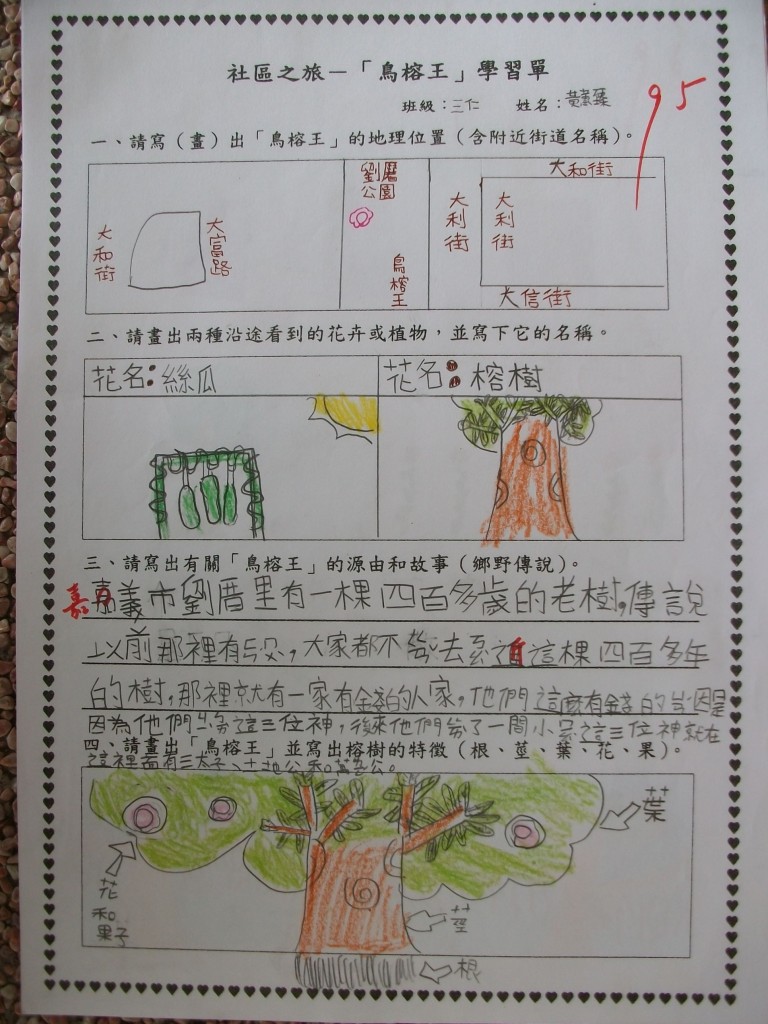 社區之旅－「鳥榕王」學習單
班級：三仁 姓名：黃
95
一、請寫（畫）出「鳥榕王」的地理位置（含附近街道名稱）。
大和街
大富路
劉厝公園
鳥榕王
大利街
大利街
大和街
大信街
二、請畫出兩種沿途看到的花卉或植物，並寫下它的名稱。
花名：絲瓜
花名：榕樹
三、請寫出有關「鳥榕王」的源由和故事（鄉野傳說）。
嘉
嘉義市劉厝里有一棵四百多歲的老樹，傳說
以前那裡有，大家都不去這棵四百多年
的樹，那裡就有一家有錢的人家，他們這麼有錢的是
因為他們這三位神，後來他們了一間小這三位神就在
四、請畫出「鳥榕王」並寫出榕樹的特徵（根、莖、葉、花、果）。
這裡面有三太子、土地公和公。
葉
花和果子
莖
根